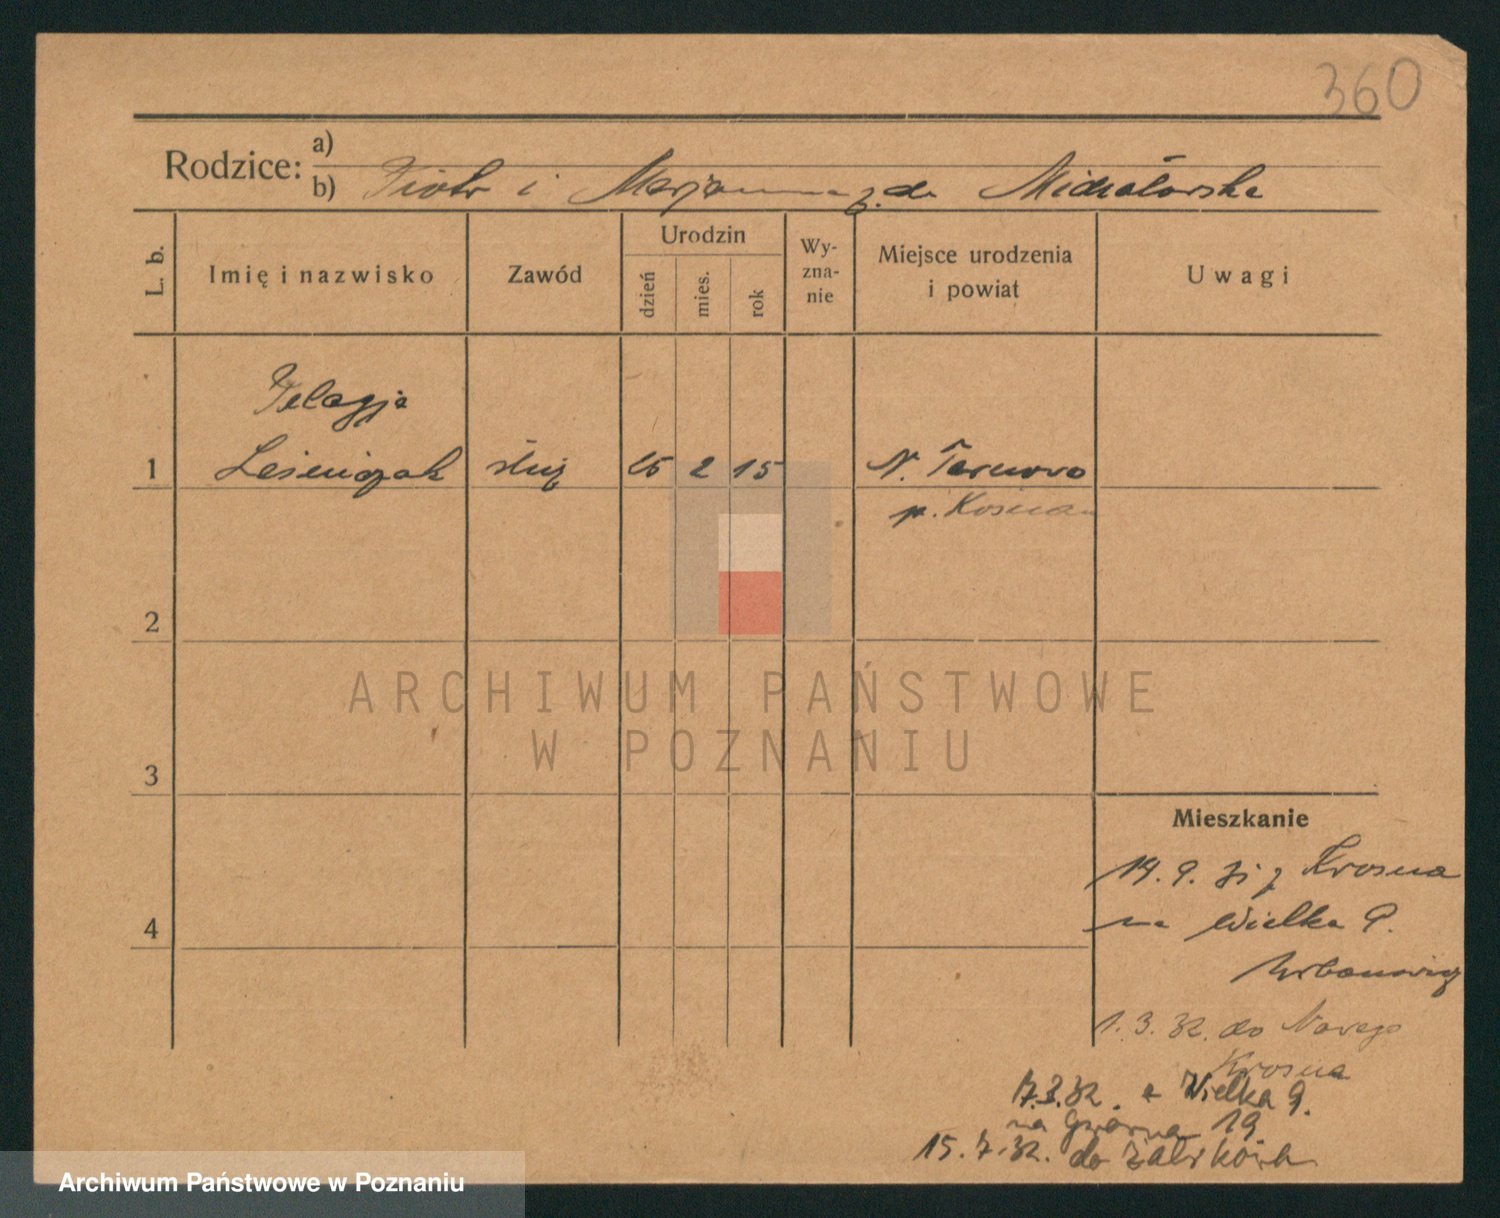 360
Rodzice: a)
b) Piotr i Marjanna z d. Michalorska
L. b.
Imię i nazwisko
Zawód
Urodzin
dzień
mies.
rok
Wy-
zna-
nie
Miejsce urodzenia
i powiat
Uwagi
Pelagja
1 Leśniczak służ 2 15 N. Tarnowo
p. Kościan
2
ARCHIWUM PAŃSTWOWE
W POZNANIU
3
Mieszkanie
14. 9. 31 z Krosna
na Wielka 9.
4
Urbanowicz
1. 3. 32. do Nowego
Krosna
17.3.32. z Wielka 9.
na 19
15. 7. 32. do
Archiwum Państwowe w Poznaniu